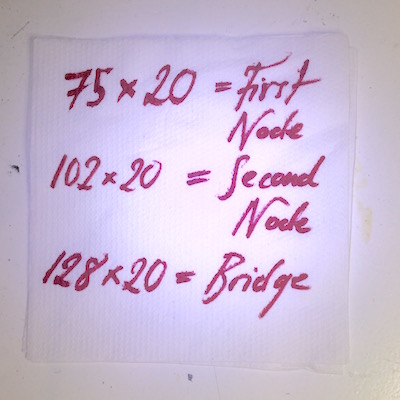 75 × 20 = First
Node
102 × 20 = Second
Node
128 × 20 = Bridge